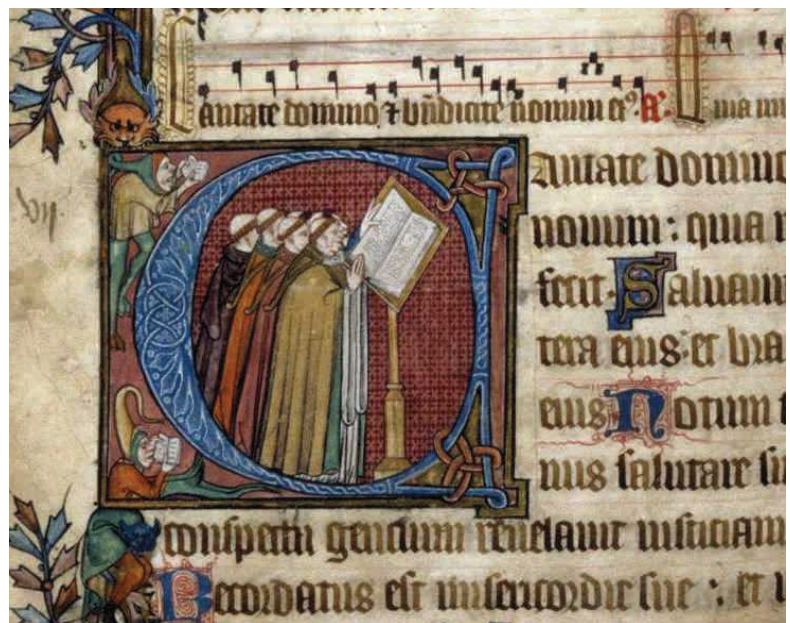 Cantate domino ⁊ bn̄dicite nomini eiꝰ. A̅. Quia mi
Cantate domino
nouum : quia
fecit. Saluaui
tera eius: et bra
eius Notum
nus salutare su
conspectu gentium reuelauit iusticiam
Recordatus est misericordie sue : et